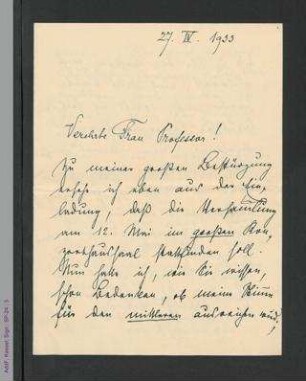 27. IV. 1933
Verehrte Frau Professor!
Zu meiner großen Bestürzung
ersehe ich eben aus der Ein-
ladung, daß die Versammlung
am 12. Mai im großen Kon-
zerthaussaal stattfinden soll.
Nun hatte ich, wie Sie wissen,
schon Bedenken, ob meine Stimme
für den mittleren ausreichen wird,
AddF, Kassel, Sign.